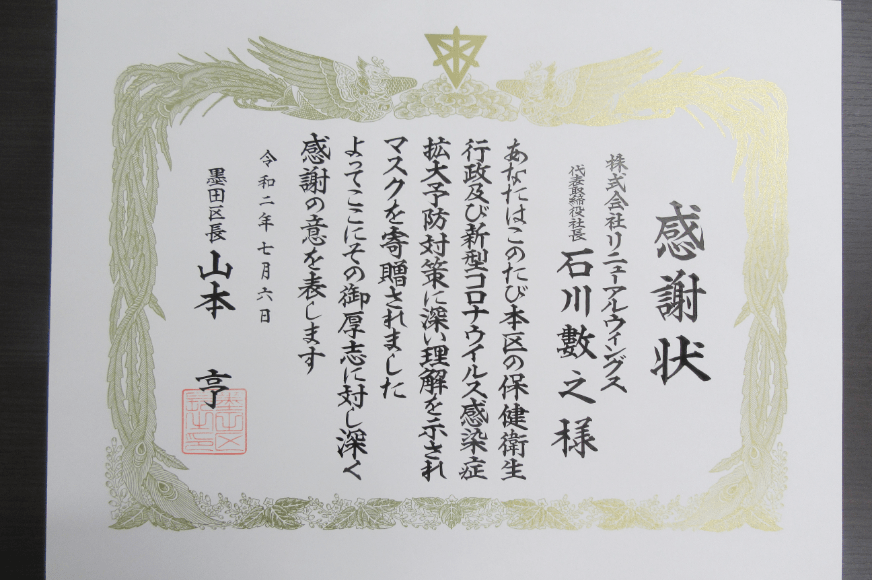 感謝状
株式会社リニューアルウィングス
代表取締役社長 石川數之様
あなたはこのたび本区の保健衛生
行政及び新型コロナウイルス感染症
拡大予防対策に深い理解を示され
マスクを寄贈されました
よってここにその御厚志に対し深く
感謝の意を表します
令和二年七月六日
墨田区長 山本 亨